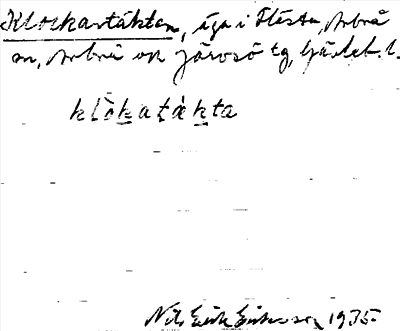 Klockartäkten, äga i Flästa, Arbrå
sn, Arbrå och Järvsö tg, Gävleb. l.
klò̀katàkta
Nils Erik Eriksson 1935